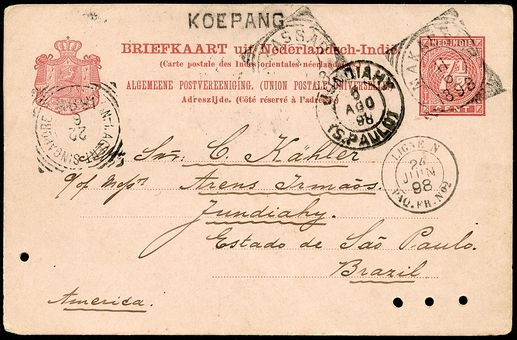 KOEPANG
BRIEFKAART uit Nederlandsch-Indië
(Carte postale des Indes orientales néerlandaises)
ALGEMEENE POSTVEREENIGING. (UNION POSTALE UNIVERSELLE)
Adreszijde. (Côté réservé à l'adresse)
NED-INDIE
7½
CENT
MAKASSAR
1898
JUNDIAHY
9
AGO
98
(S.PAULO)
LIGNE N
24
JUIN
98
PAQ. FR. No2
SINGAPORE
22
Snr. C. Kähler
Arens Irmãos.
Jundiahy.
Estado de São Paulo.
Brazil
America.